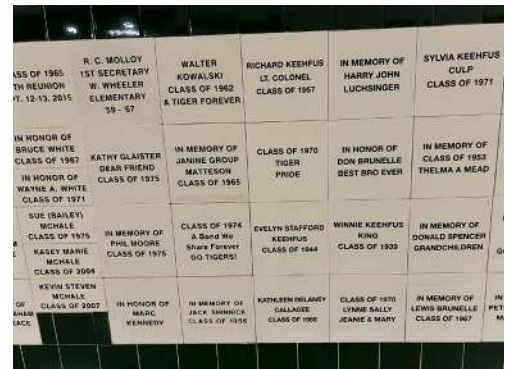 ASS OF 1965
TH REUNION
PT. 12-13, 2015
R. C. MOLLOY
1ST SECRETARY
W. WHEELER
ELEMENTARY
'59 - '67
WALTER
KOWALSKI
CLASS OF 1962
A TIGER FOREVER
RICHARD KEEHFUS
LT. COLONEL
CLASS OF 1957
IN MEMORY OF
HARRY JOHN
LUCHSINGER
SYLVIA KEEHFUS
CULP
CLASS OF 1971
IN HONOR OF
BRUCE WHITE
CLASS OF 1967
IN HONOR OF
WAYNE A. WHITE
CLASS OF 1971
KATHY GLAISTER
DEAR FRIEND
CLASS OF 1975
IN MEMORY OF
JANINE GROUP
MATTESON
CLASS OF 1965
CLASS OF 1970
TIGER
PRIDE
IN HONOR OF
DON BRUNELLE
BEST BRO EVER
IN MEMORY OF
CLASS OF 1953
THELMA A MEAD
SUE (BAILEY)
MCHALE
CLASS OF 1975
KASEY MARIE
MCHALE
CLASS OF 2004
IN MEMORY OF
PHIL MOORE
CLASS OF 1975
CLASS OF 1974
A Bond We
Share Forever
GO TIGERS!
EVELYN STAFFORD
KEEHFUS
CLASS OF 1944
WINNIE KEEHFUS
KING
CLASS OF 1939
IN MEMORY OF
DONALD SPENCER
GRANDCHILDREN
KEVIN STEVEN
MCHALE
CLASS OF 2007
IN HONOR OF
MARC
KENNEDY
IN MEMORY OF
JACK
CLASS OF 1956
KATHLEEN DELANEY
CALLAGEE
CLASS OF 1966
CLASS OF 1970
LYNNE SALLY
JEANIE & MARY
IN MEMORY OF
LEWIS BRUNELLE
CLASS OF 1967